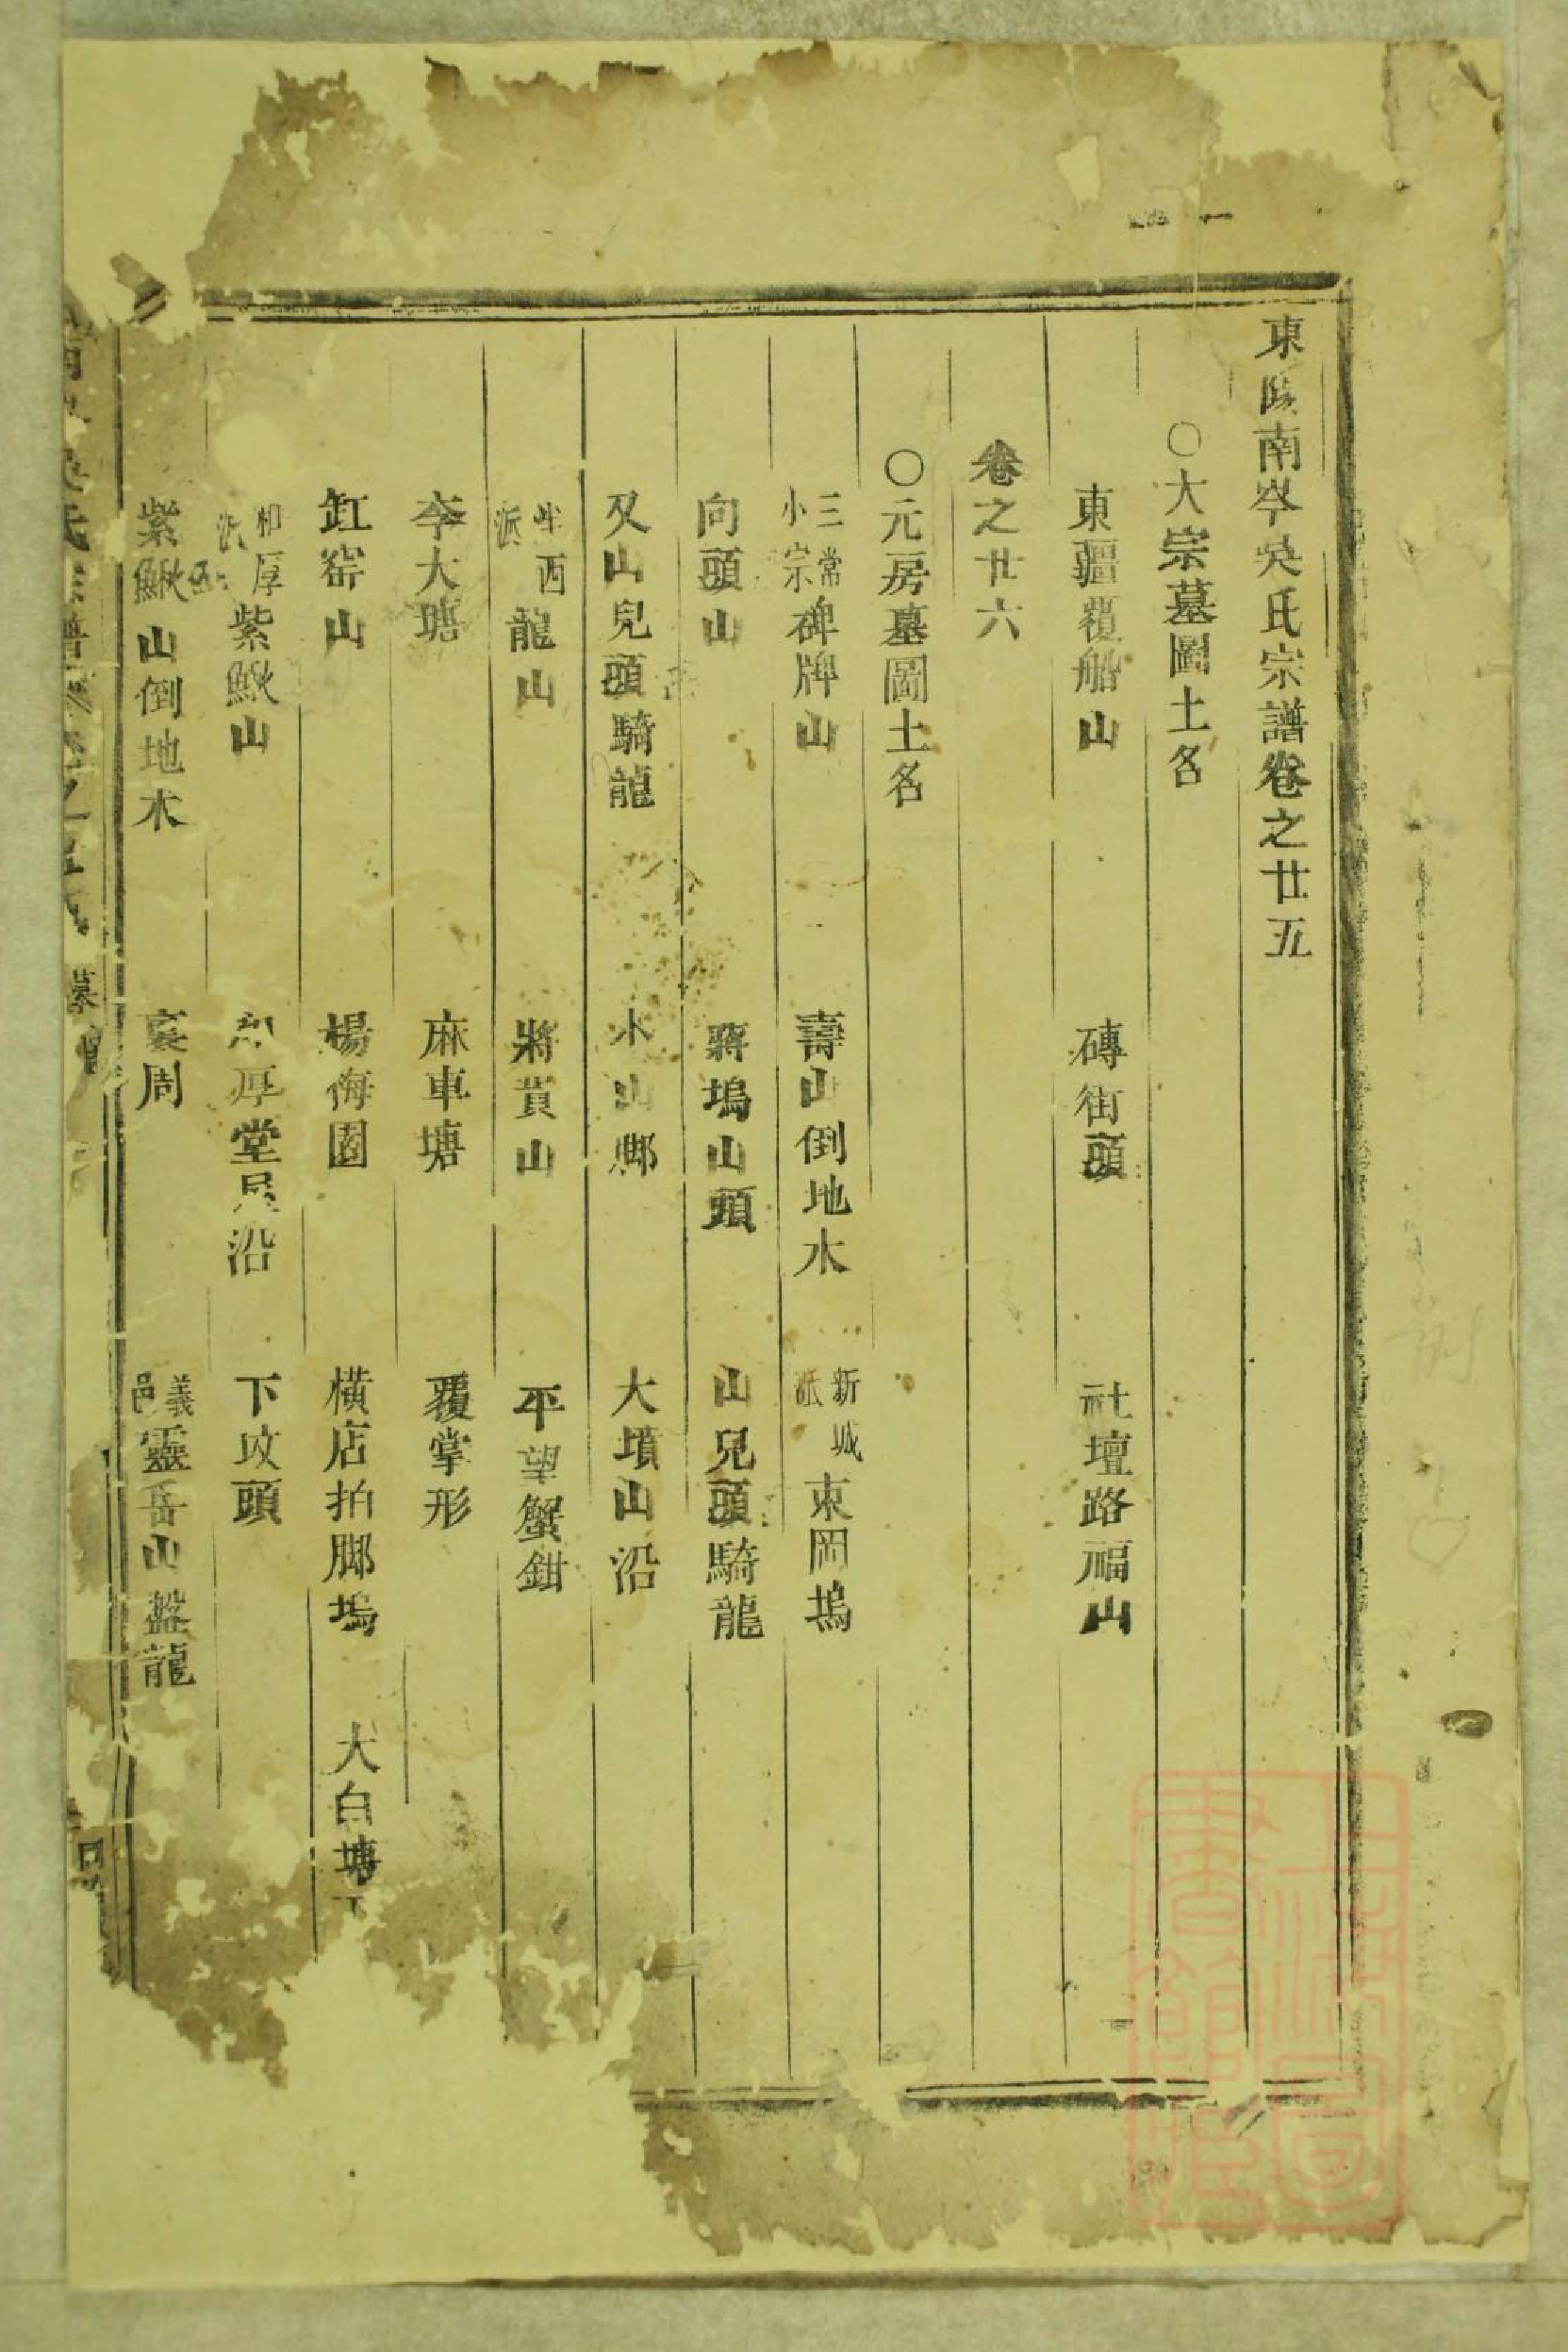 東陽南岑吳氏宗譜卷之廿五
○大宗墓圖土名
東疆覆船山 磚街頭 社壇路福山
卷之廿六
○元房墓圖土名
三常小宗碑牌山 壽山倒地木 新城派東岡塢
向頭山 蔣塢山頭 山兒頭騎龍
又山兒頭騎龍 木山鄉 大墳山沿
西派龍山 將貫山 平望蟹鉗
李大塘 麻車塘 覆掌形
缸窑山 楊梅園 橫店拍脚塢 大白塘
和厚派紫鰍山 和厚堂沿 下坟頭
紫鰍山倒地木 裏周 義邑靈岳山盤龍
上海圖書館藏